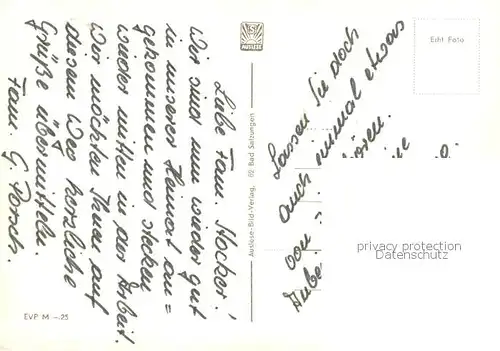 Liebe Fam. Hocker!
Wir sind nun wieder gut
in unserer Heimat an=
gekommen und stecken
wieder mitten in der Arbeit.
Wir möchten Ihnen auf
diesem Weg herzliche
Grüße übermitteln.
Fam. G. Porsch.
Lassen Sie doch
auch einmal etwas
von hören.
AUSLESE
Auslese-Bild-Verlag, 62 Bad Salzungen
Echt Foto
EVP M -.25
privacy protection
Datenschutz